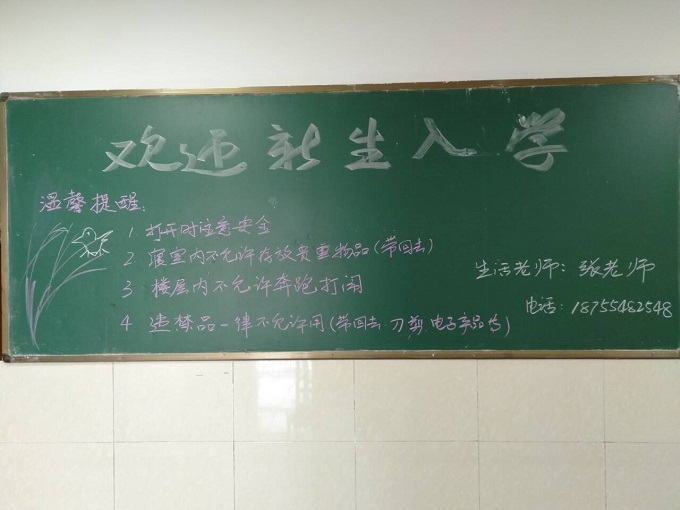 欢迎新生入学
温馨提醒:
1 打开时注意安全
2 寝室内不允许存放贵重物品(带回去)
3 楼层内不允许奔跑打闹
4 违禁品一律不允许用(带回去 刀剪 电子产品等)
生活老师: 张老师
电话: 18755482548